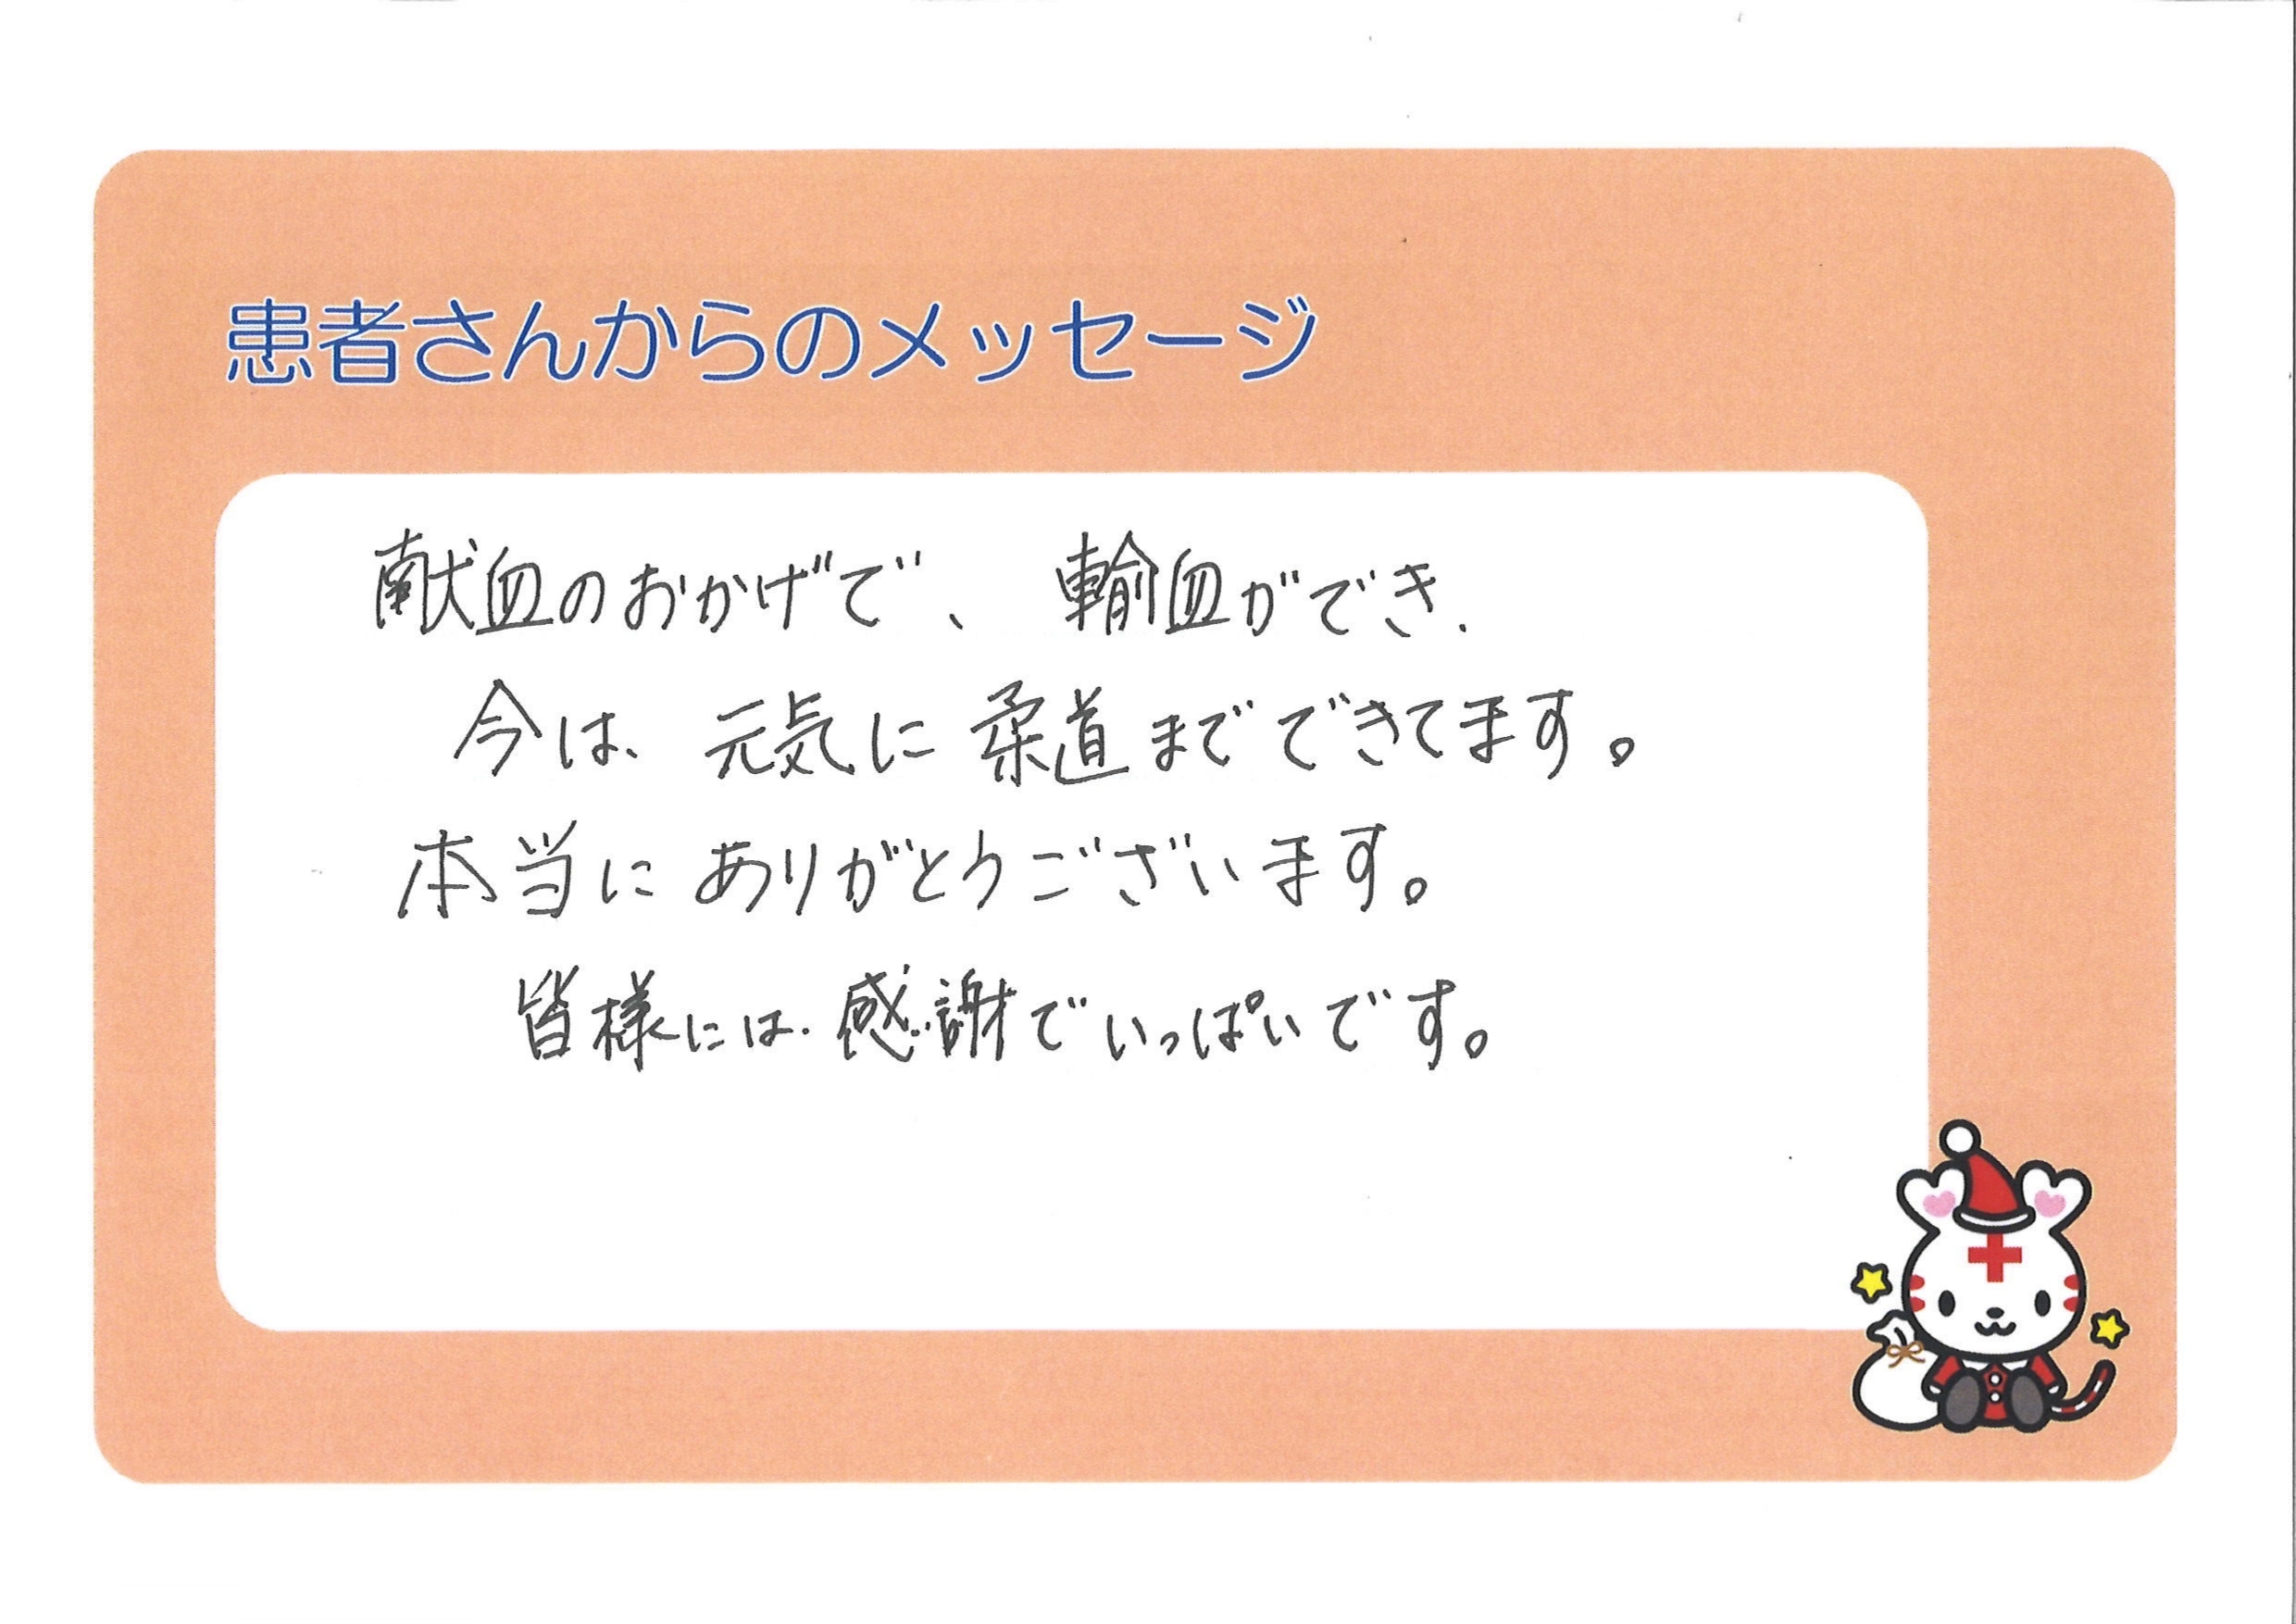 患者さんからのメッセージ
献血のおかげで、輸血ができ、
今は、元気に柔道までできてます。
本当にありがとうございます。
皆様には、感謝でいっぱいです。